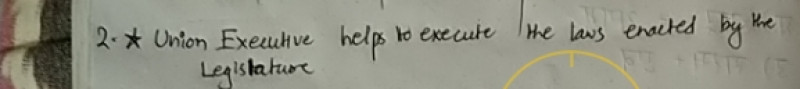 2. ★ Union Executive helps to execute the laws enacted by the
Legislature